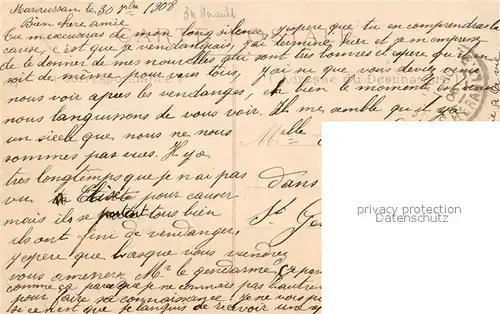 Maurrussan le 30 7bre 1908
34 Herault
Bien chere amie
Tu m'excuseras de mon long silence, j'espere que tu en comprendras la
cause, c'est que je vendangeais, j'ai terminé hier et je m'empresse
de te donner de mes nouvelles qui sont tres bonnes et espere qu'il en
soit de même pour vous tous, j'ai que vous deviez venir
nous voir après les vendanges, eh bien le moment est venu
nous languissons de vous voir. Il me semble qu'il y a
un siecle que nous ne nous
sommes pas vues. Il y a
tres longtemps que je n'ai pas
vu Elise pour causer
mais ils se portent tous bien
ils ont fini de vendanger,
j'espere que lorsque vous viendrez
vous amenerez Mr le gendarme,
comme ça parce que je ne connais pas
pour faire sa connaissance! je ne vous
si ce n'est que je languis de recevoir
Mlle
dans
St Ge
privacy protection
Datenschutz